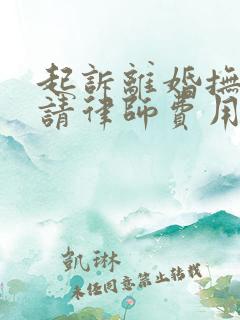 起訴離婚撫
請律師費用
凱琳
未經同意禁止轉載